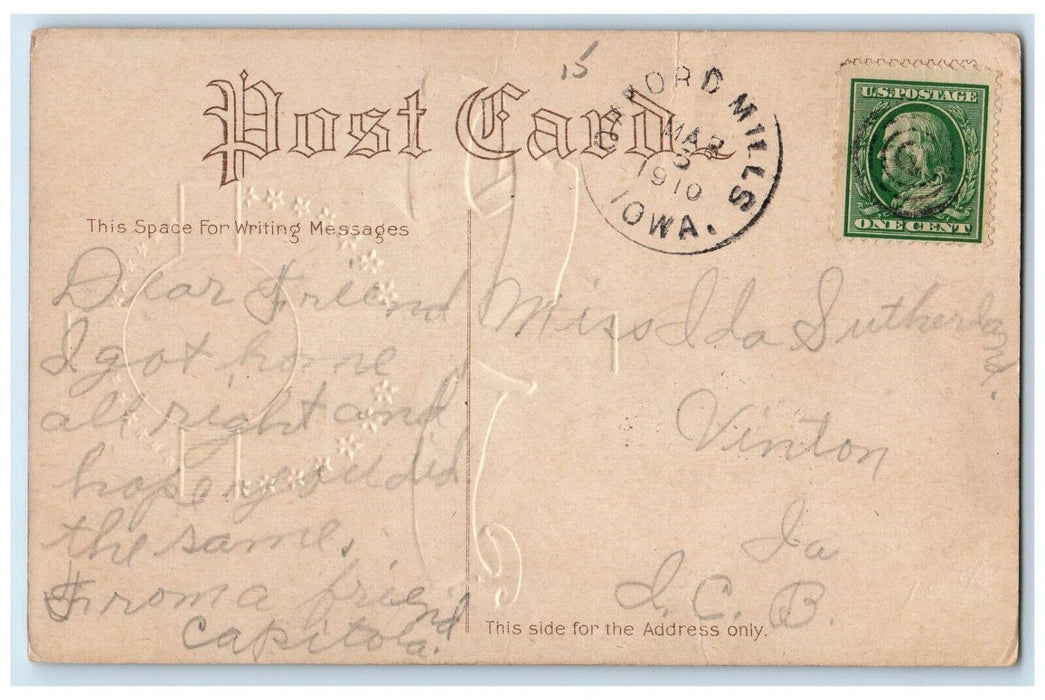 Post Card
15
OXFORD MILLS
MAR
5
1910
IOWA.
U.S. POSTAGE
ONE CENT
This Space For Writing Messages
Dear Friend
I got home
all right and
hope you did
the same.
From a friend
Capitola.
Miss Ida Sutherland.
Vinton
Ia
I. C. B.
This side for the Address only.